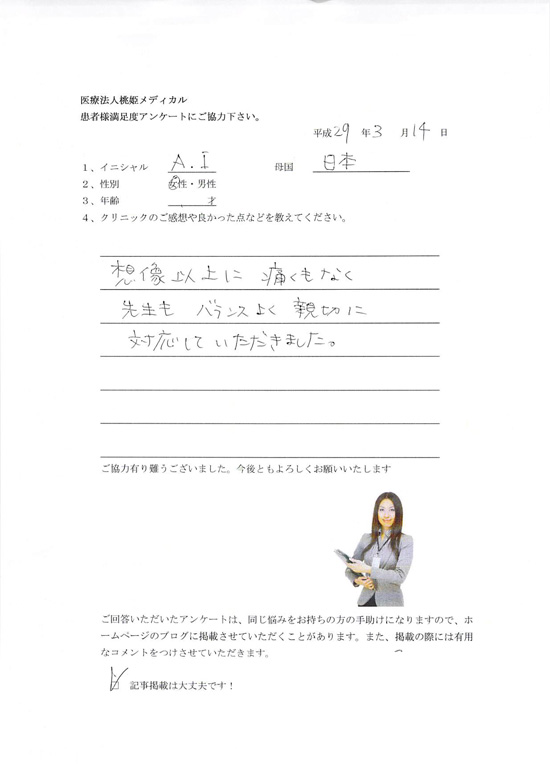 医療法人桃姫メディカル
患者様満足度アンケートにご協力下さい。
平成29年3月14日
1、イニシャル A.I 母国 日本
2、性別 女性・男性
3、年齢 才
4、クリニックのご感想や良かった点などを教えてください。
想像以上に 痛くもなく
先生も バランスよく 親切に
対応していただきました。
ご協力有り難うございました。今後ともよろしくお願いいたします
ご回答いただいたアンケートは、同じ悩みをお持ちの方の手助けになりますので、ホ
ームページのブログに掲載させていただくことがあります。また、掲載の際には有用
なコメントをつけさせていただきます。
記事掲載は大丈夫です！